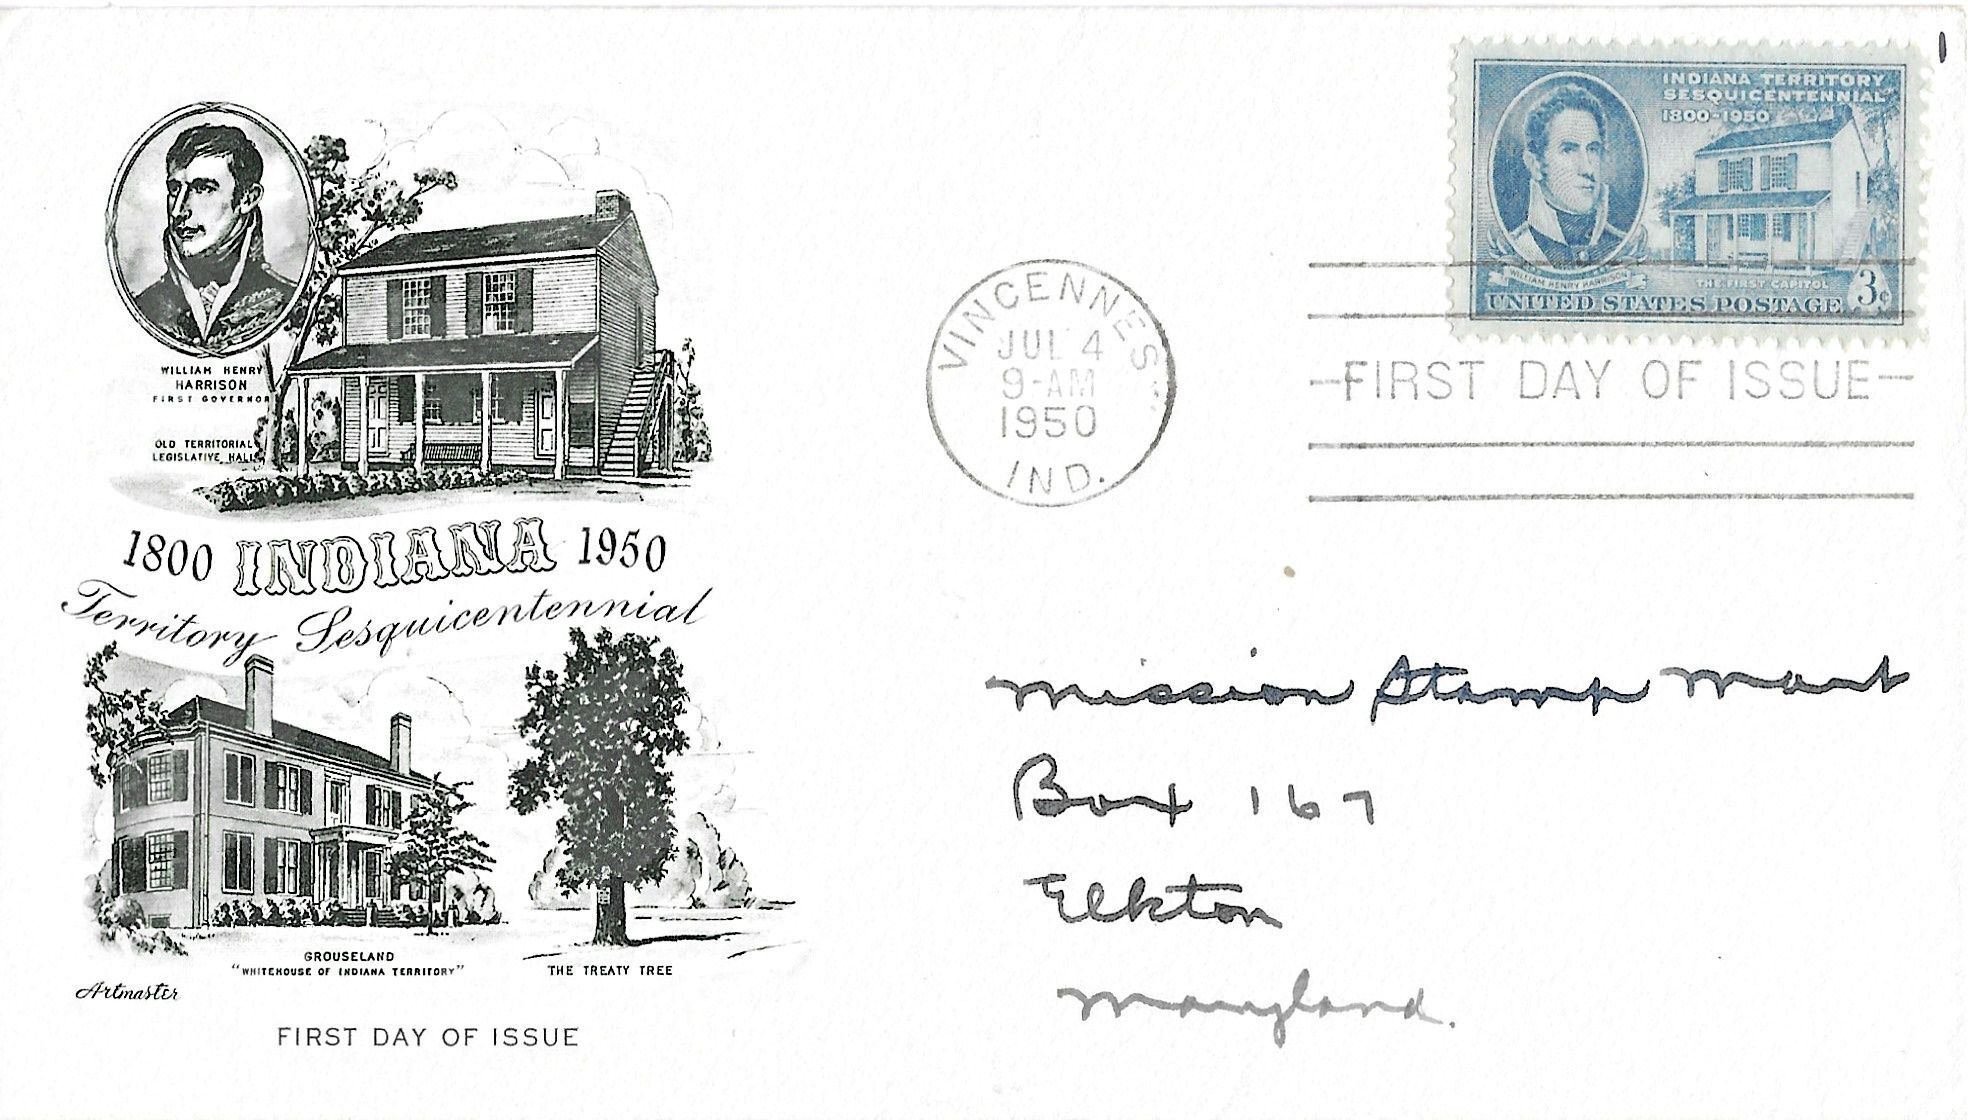 WILLIAM HENRY
HARRISON
FIRST GOVERNOR
OLD TERRITORIAL
LEGISLATIVE HALL
1800 INDIANA 1950
Territory Sesquicentennial
GROUSELAND
"WHITEHOUSE OF INDIANA TERRITORY"
THE TREATY TREE
Artmaster
FIRST DAY OF ISSUE
VINCENNES
JUL 4
9-AM
1950
IND.
INDIANA TERRITORY
SESQUICENTENNIAL
1800-1950
WILLIAM HENRY HARRISON
THE FIRST CAPITOL
UNITED STATES POSTAGE 3¢
-FIRST DAY OF ISSUE-
Mission Stamp Mart
Box 167
Elkton
Maryland.